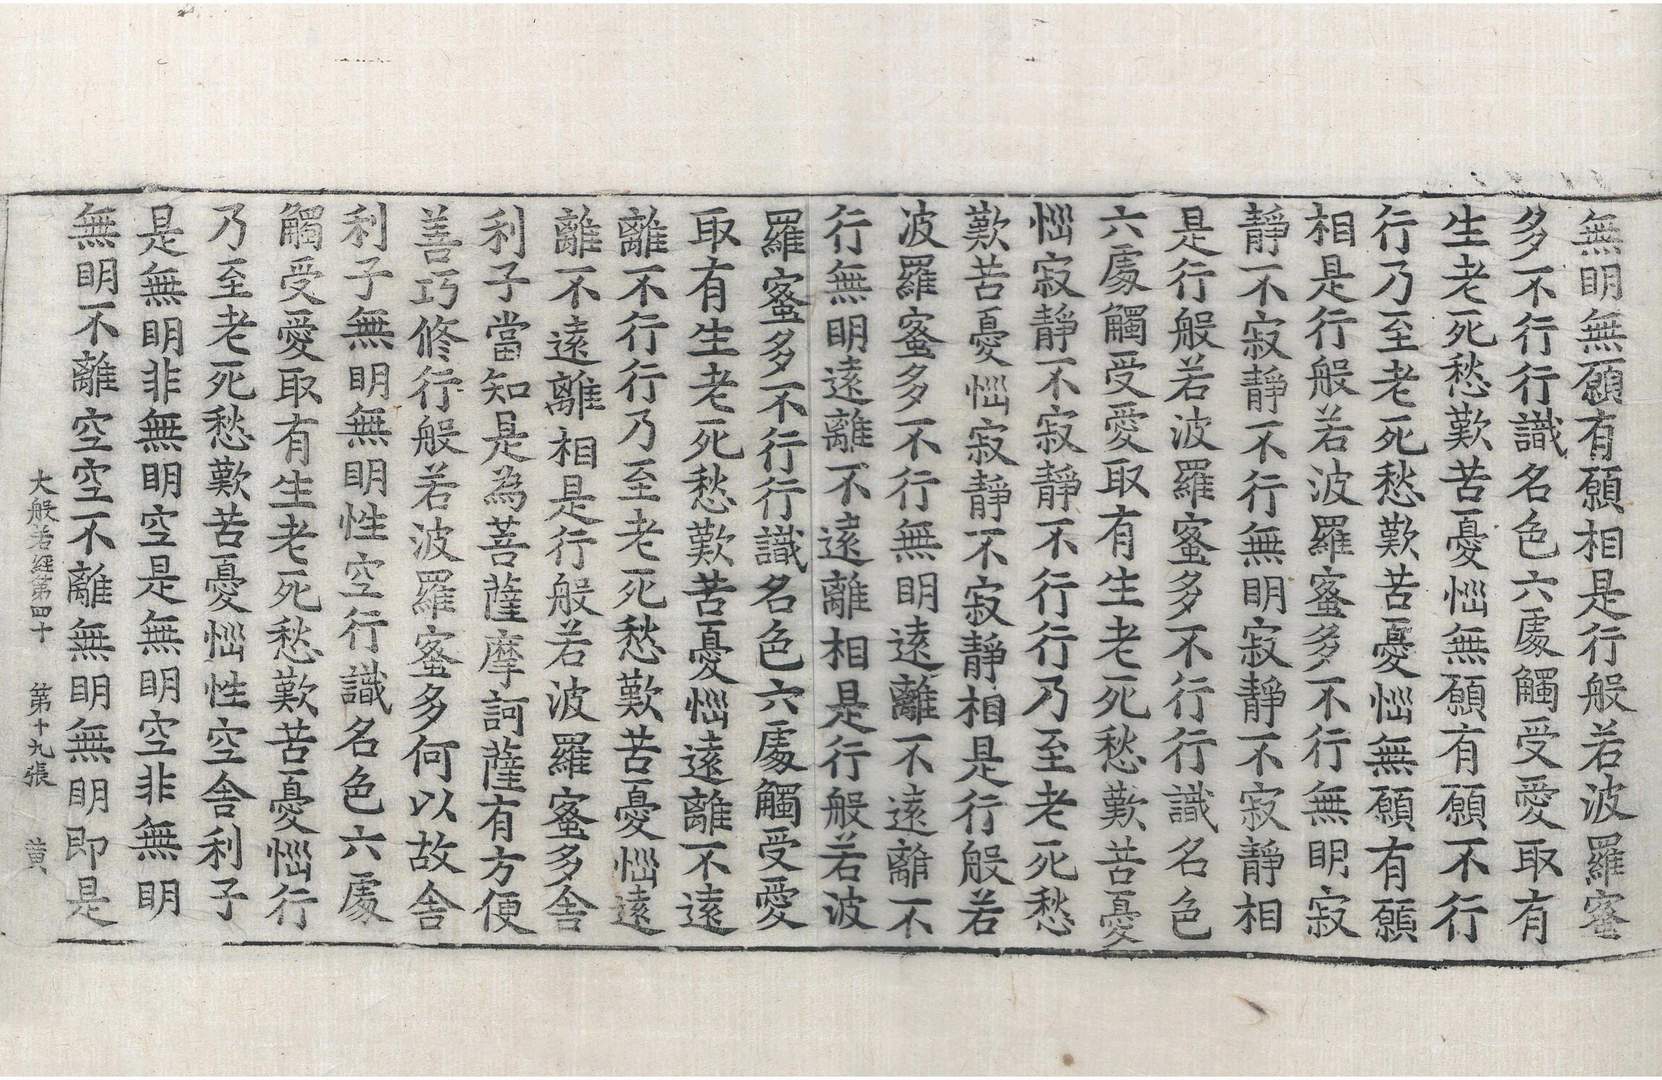 無眀無願有願相是行般若波羅蜜
多不行行識名色六處觸受愛取有
生老死愁歎苦憂惱無願有願不行
行乃至老死愁歎苦憂惱無願有願
相是行般若波羅蜜多不行無眀寂
靜不寂靜不行無眀寂靜不寂靜相
是行般若波羅蜜多不行行識名色
六處觸受愛取有生老死愁歎苦憂
惱寂靜不寂靜不行行乃至老死愁
歎苦憂惱寂靜不寂靜相是行般若
波羅蜜多不行無眀遠離不遠離不
行無眀遠離不遠離相是行般若波
羅蜜多不行行識名色六處觸受愛
取有生老死愁歎苦憂惱遠離不遠
離不行行乃至老死愁歎苦憂惱遠
離不遠離相是行般若波羅蜜多舍
利子當知是為菩薩摩訶薩有方便
善巧修行般若波羅蜜多何以故舍
利子無眀無眀性空行識名色六處
觸受愛取有生老死愁歎苦憂惱行
乃至老死愁歎苦憂惱性空舍利子
是無眀非無眀空是無眀空非無眀
無眀不離空空不離無眀無眀即是
大般若經第四十 第十九張 黄